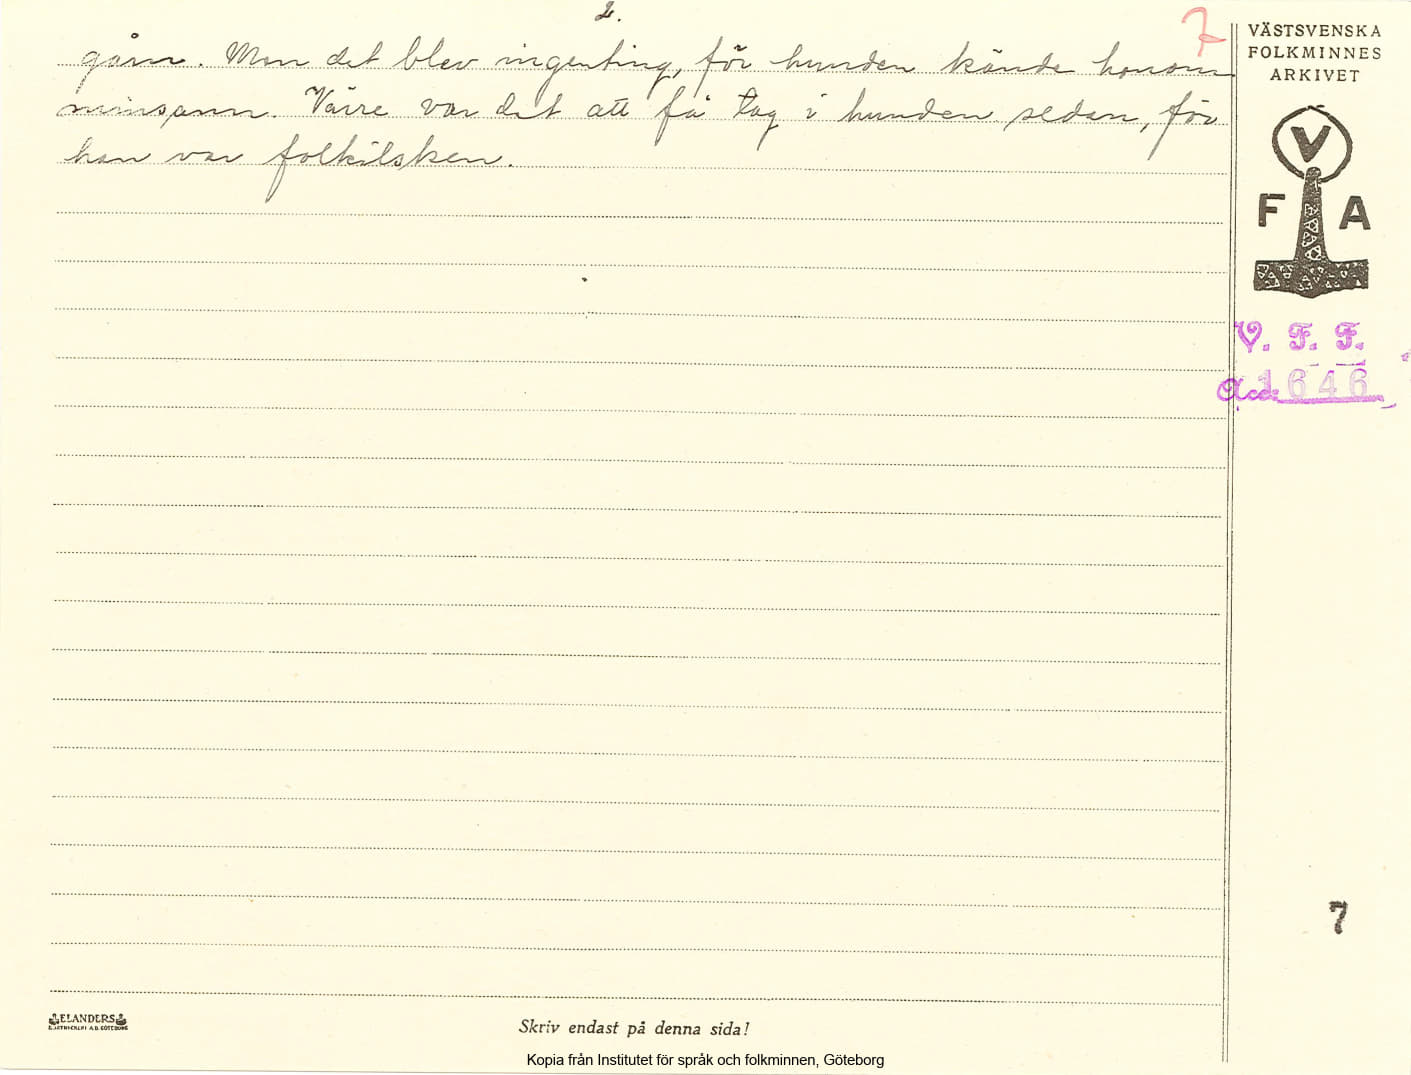 2.
7
gårn. Men det blev ingenting, för hunden kände honom
minsann. Värre var det att få tag i hunden sedan, för
han var folkilsken.
VÄSTSVENSKA
FOLKMINNES
ARKIVET
V
F A
V. F. F.
Acc: 1646
7
ELANDERS
Skriv endast på denna sida!
Kopia från Institutet för språk och folkminnen, Göteborg